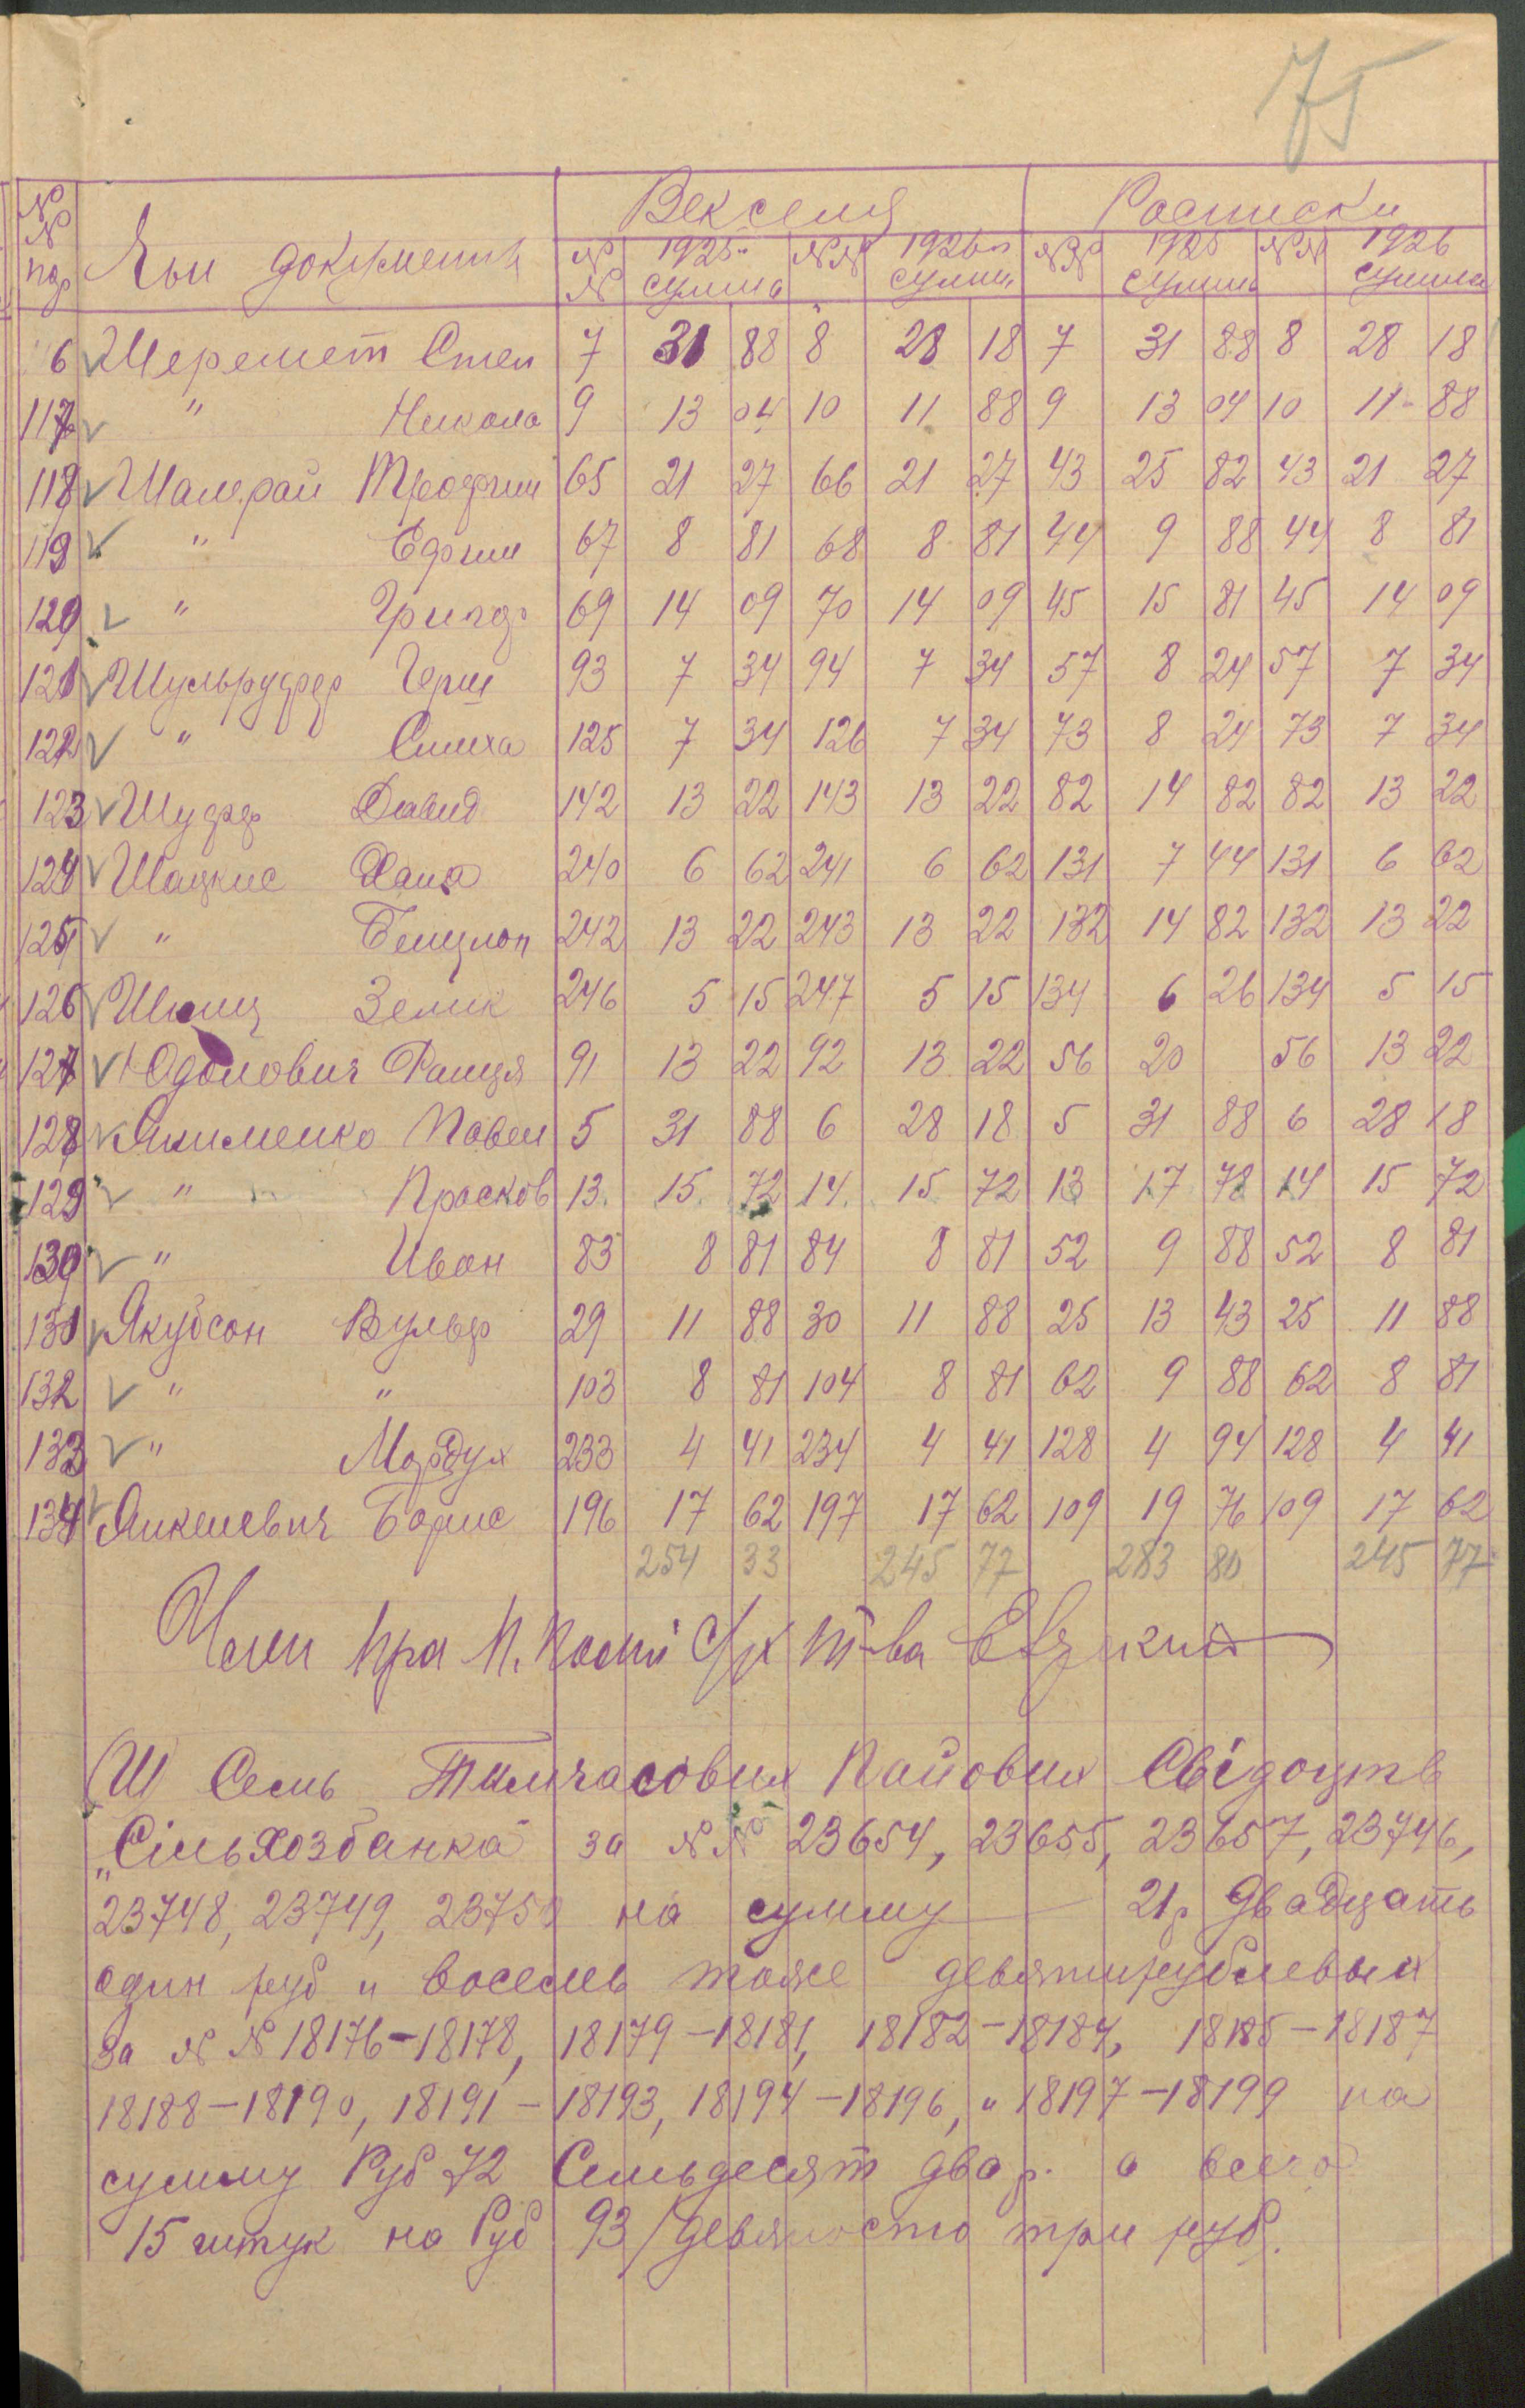 75
№ № пор Чьи документы Векселя Росписки
№ № 1925 сумма № № 1926 сумма № № 1925 сумма № № 1926 сумма
6 Шеремет Степ 7 31 88 8 28 18 7 31 88 8 28 18
117 " Никола 9 13 04 10 11 88 9 13 04 10 11 88
118 Шамрай Трофим 65 21 27 66 21 27 43 25 82 43 21 27
119 " Ефим 67 8 81 68 8 81 44 9 88 44 8 81
120 " Григор 69 14 09 70 14 09 45 15 81 45 14 09
121 Шульруфер Герш 93 7 34 94 7 34 57 8 24 57 7 34
122 " Симха 125 7 34 126 7 34 73 8 24 73 7 34
123 Шуфер Давид 142 13 22 143 13 22 82 14 82 82 13 22
124 Шацкис Хана 240 6 62 241 6 62 131 7 44 131 6 62
125 " Бенцион 242 13 22 243 13 22 132 14 82 132 13 22
126 Зелик 246 5 15 247 5 15 134 6 26 134 5 15
127 Юдолович 91 13 22 92 13 22 56 20 56 13 22
128 Якименко Павел 5 31 88 6 28 18 5 31 88 6 28 18
129 " Просков 13 15 72 14 15 72 13 17 78 14 15 72
130 " Иван 83 8 81 84 8 81 52 9 88 52 8 81
131 Якубсон Вульф 29 11 88 30 11 88 25 13 43 25 11 88
132 " " 103 8 81 104 8 81 62 9 88 62 8 81
133 " Мордух 233 4 41 234 4 41 128 4 94 128 4 41
134 Янкелевич Борис 196 17 62 197 17 62 109 19 76 109 17 62
254 33 245 77 283 80 245 77
Член С/х т-ва
Семь Тимчасових Пайових Свідоцтв
"Сільхозбанка" за № № 23654, 23655, 23657, 23746,
23748, 23749, 23750 на сумму 21р. Двадцать
один руб и восемь тоже девятирублевых
за № № 18176-18178, 18179-18181, 18182-18184, 18185-18187
18188-18190, 18191-18193, 18194-18196, и 18197-18199 на
сумму Руб 72 Семьдесят два р. а всего
15 штук на Руб 93 / девяносто три руб.